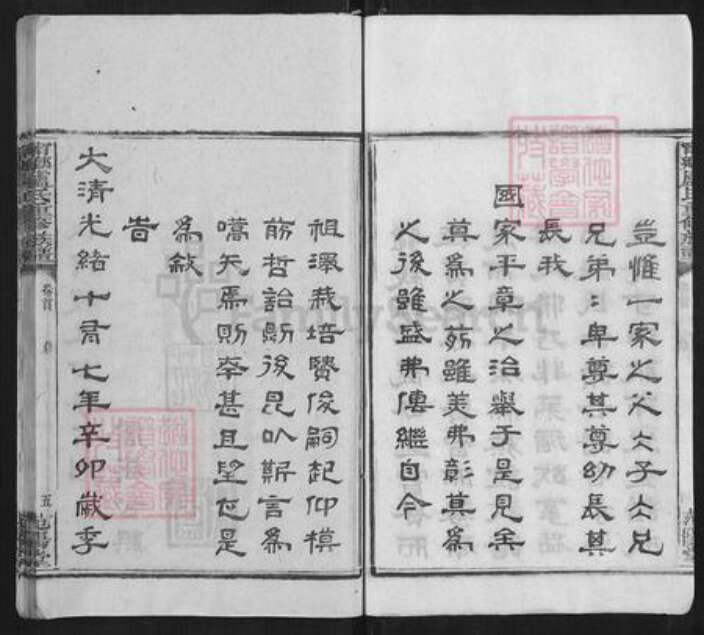 豈惟一家之父父子子兄
兄弟弟卑尊其尊幼長其
長我
國家平章之治舉于是見矣
莫爲之前雖美弗彰莫爲
之後雖盛弗傳繼自今
祖澤栽培賢俊嗣起仰模
前哲詒厥後昆以斯言爲
嚆矢焉則幸甚且望也是
爲敘
旹
大清光緒十有七年辛卯歲季
卷首
五
FamilySearch